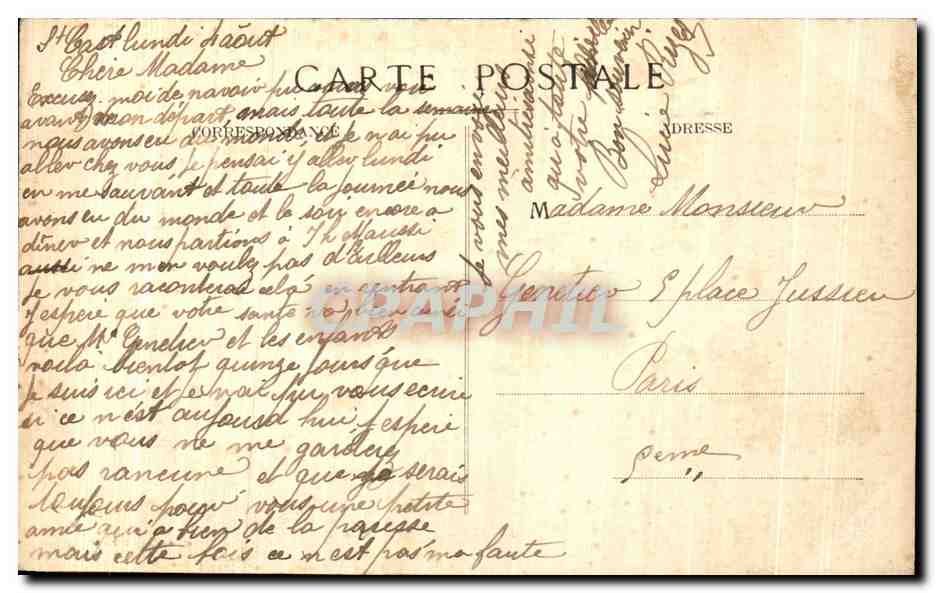 St Cast lundi 4 août
Chère Madame
Excusez moi de navoir pu vous voir
avant mon départ, mais toute la semaine
nous avons eu du monde, et je nai pu
aller chez vous, Je pensai y aller lundi
en me sauvant et toute la journée nous
avons eu du monde et le soir encore a
dîner et nous partions à 7h Maussi
aussi ne men voulez pas d'ailleurs
Je vous raconterai celà en rentrant
J'espère que votre santé va bien ainsi
que Mr Gendier et les enfants
voilà bientôt quinze jours que
Je suis ici et je nai pu vous écrire
si ce n'est aujourd hui, J espère
que vous ne me garderez
pas rancune et que je serais
toujours pour vous une petite
amie qui a bien de la paresse
mais cette fois ce n'est pas ma faute
Je vous envoie
mes meilleurs
amitiés ainsi
qu'a toute
votre famille
Bon souvenir
Lucie
CARTE POSTALE
CORRESPONDANCE
ADRESSE
Madame Monsieur
Gendier 5 place Jussieu
Paris
5eme
CPAPHIL